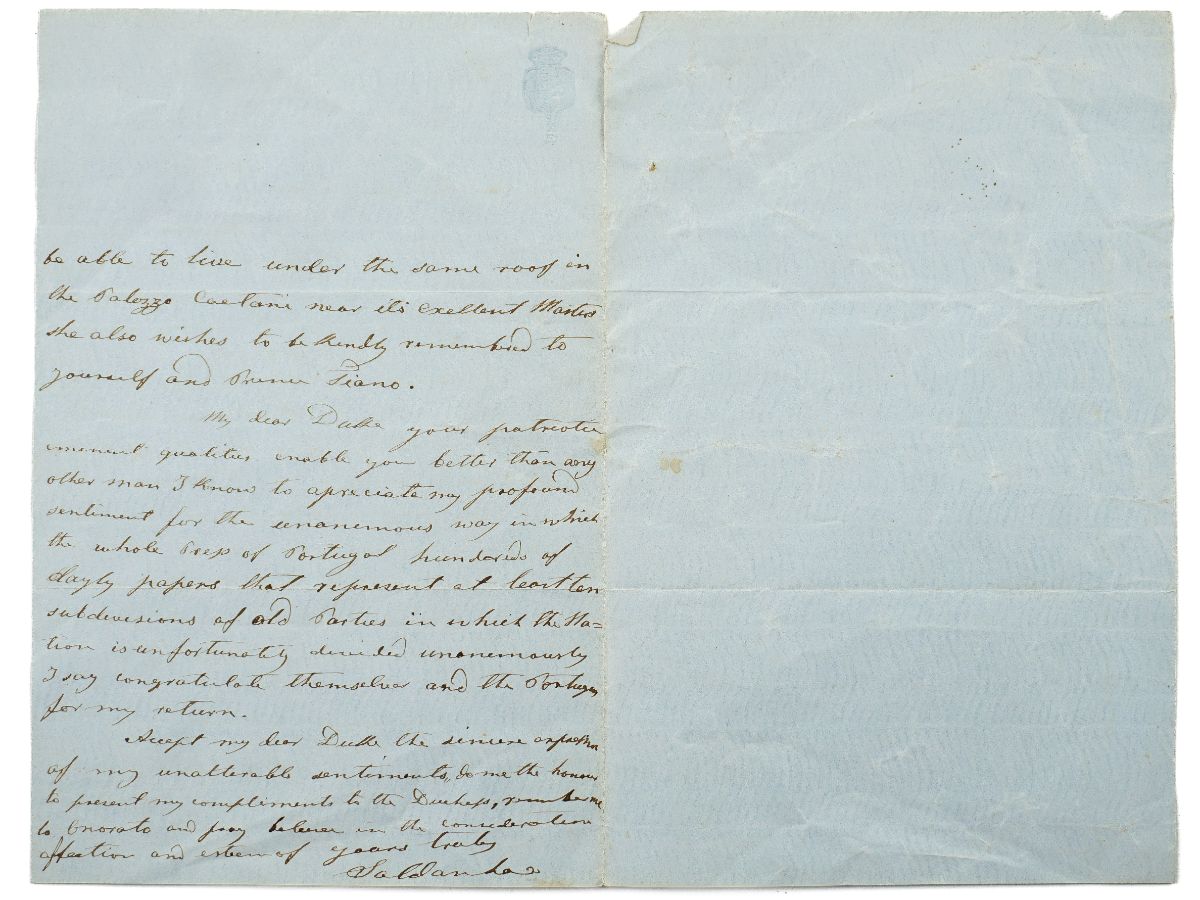 be able to live under the same roof in
the Palozzo Caetani near it's exellent Masters
she also wishes to be kindly remembered to
yourself and Prince Tiano.
My dear Duke your patriotic
eminent qualities enable you better than any
other man I know to apreciate my profound
sentiment for the unanemous way in which
the whole Press of Portugal hundereds of
dayly papers that represent at least ten
subdivisions of old Parties in which the Na=
tion is unfortunatly devided unanemously
I say congratulate themselves and the Portugues
for my return.
Accept my dear Duke the sincere expression
of my unalterable sentiments, do me the honour
to present my compliments to the Duchess, remember me
to Onorato and pray beleeve in the consideration
affection and esteem of yours truly
Saldanha